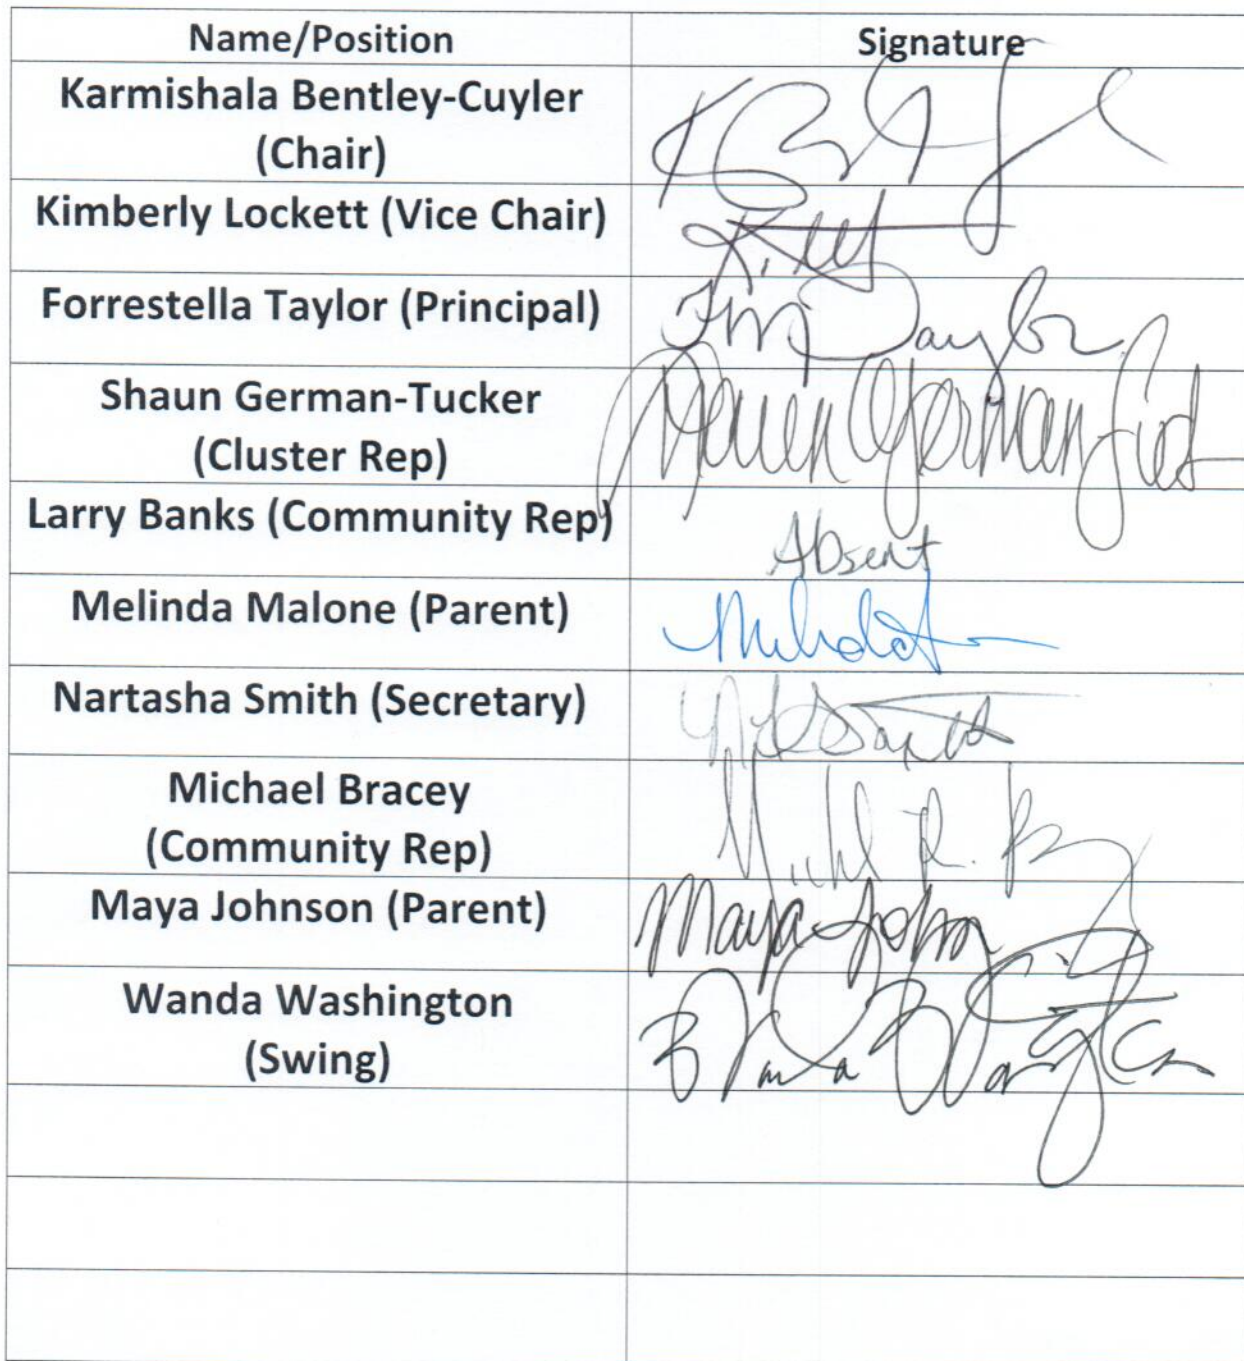 Name/Position Signature
Karmishala Bentley-Cuyler
(Chair)
Kimberly Lockett (Vice Chair)
Forrestella Taylor (Principal)
Taylor
Shaun German-Tucker
(Cluster Rep)
German
Larry Banks (Community Rep)
Absent
Melinda Malone (Parent)
Nartasha Smith (Secretary)
Michael Bracey
(Community Rep)
Maya Johnson (Parent)
Maya John
Wanda Washington
(Swing)